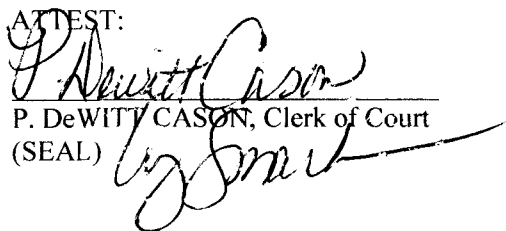 ATTEST:
P Dewitt Cason
P. DeWITT CASON, Clerk of Court
(SEAL)